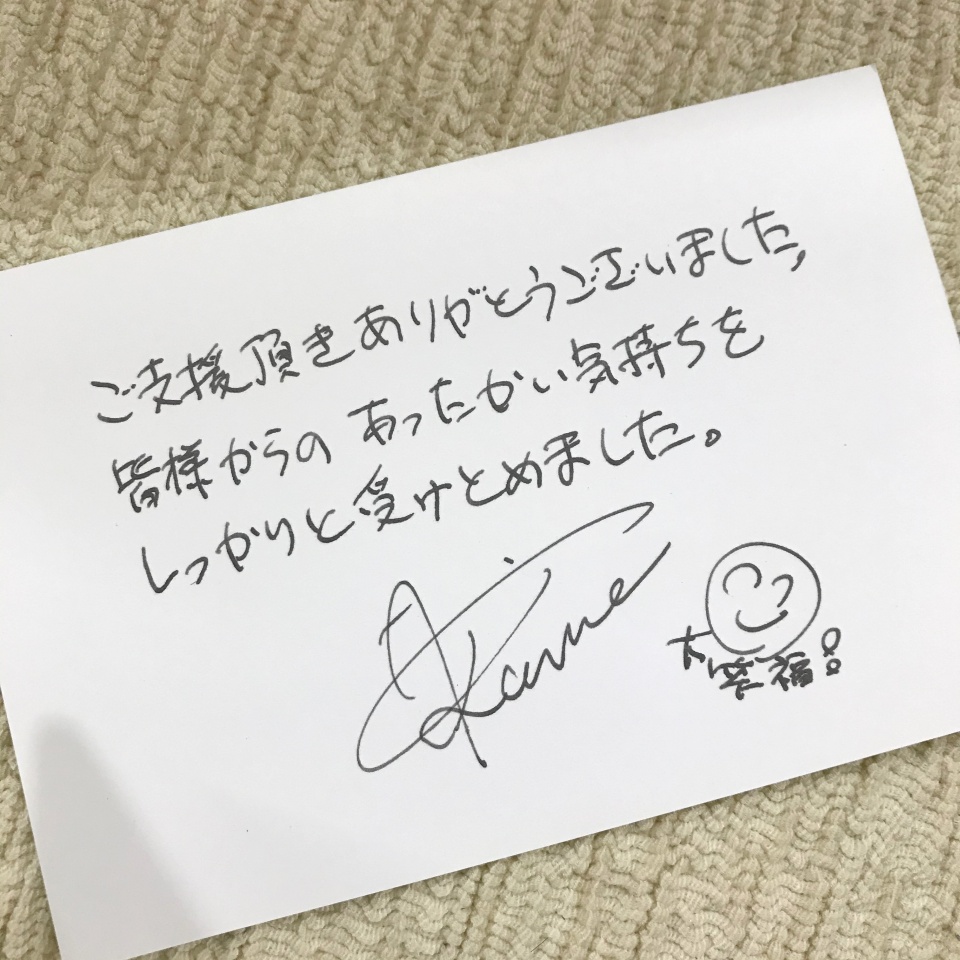 ご支援頂きありがとうございました,
皆様からの あったかい気持ちを
しっかりと受けとめました。
大笑福!!